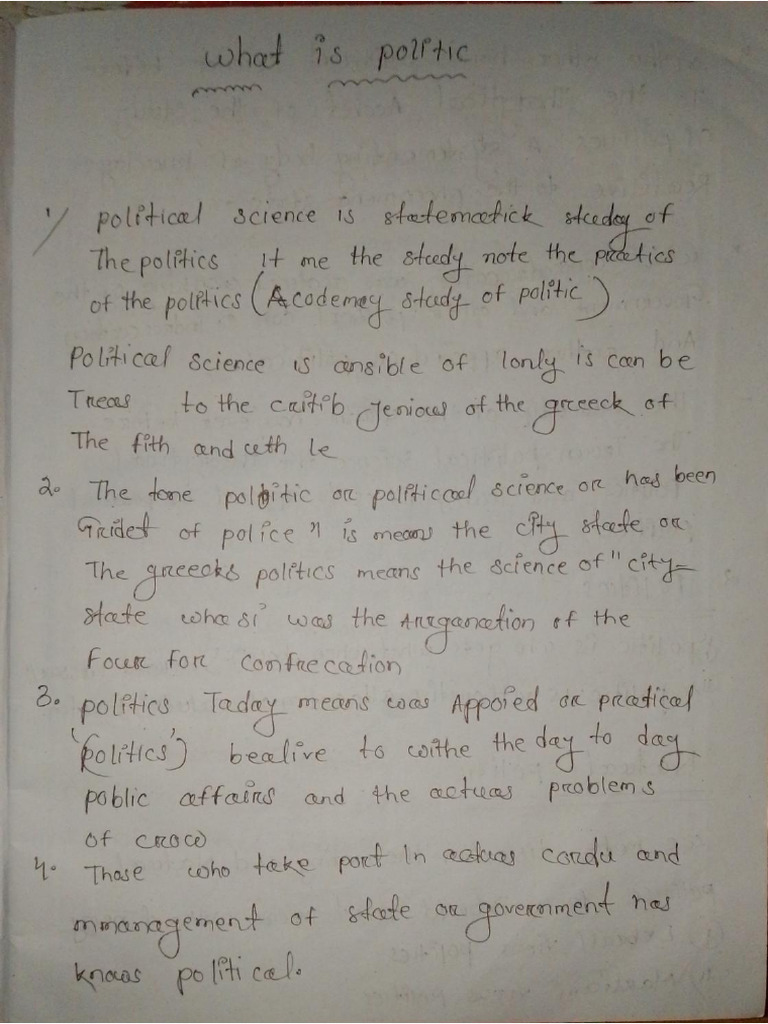 What is politic
1/ political science is statematick study of
The politics It me the study note the practics
of the politics (Acodemey study of politic)
Political science is ansible of lonly is can be
Treas to the critib Jenious of the greeck of
The fith and ceth le
2. The tone politic or political science or has been
Gridet of police" is means the city state or
The greecks politics means the science of "city-
state whasi' was the Arrganation of the
Four for confrecation
3. politics Taday means was Appoied or practical
'(politics') bealive to withe the day to day
poblic affairs and the actuas problems
of crow
4. Those who take port In actuas cordu and
mmanagement of state or government has
knows political.